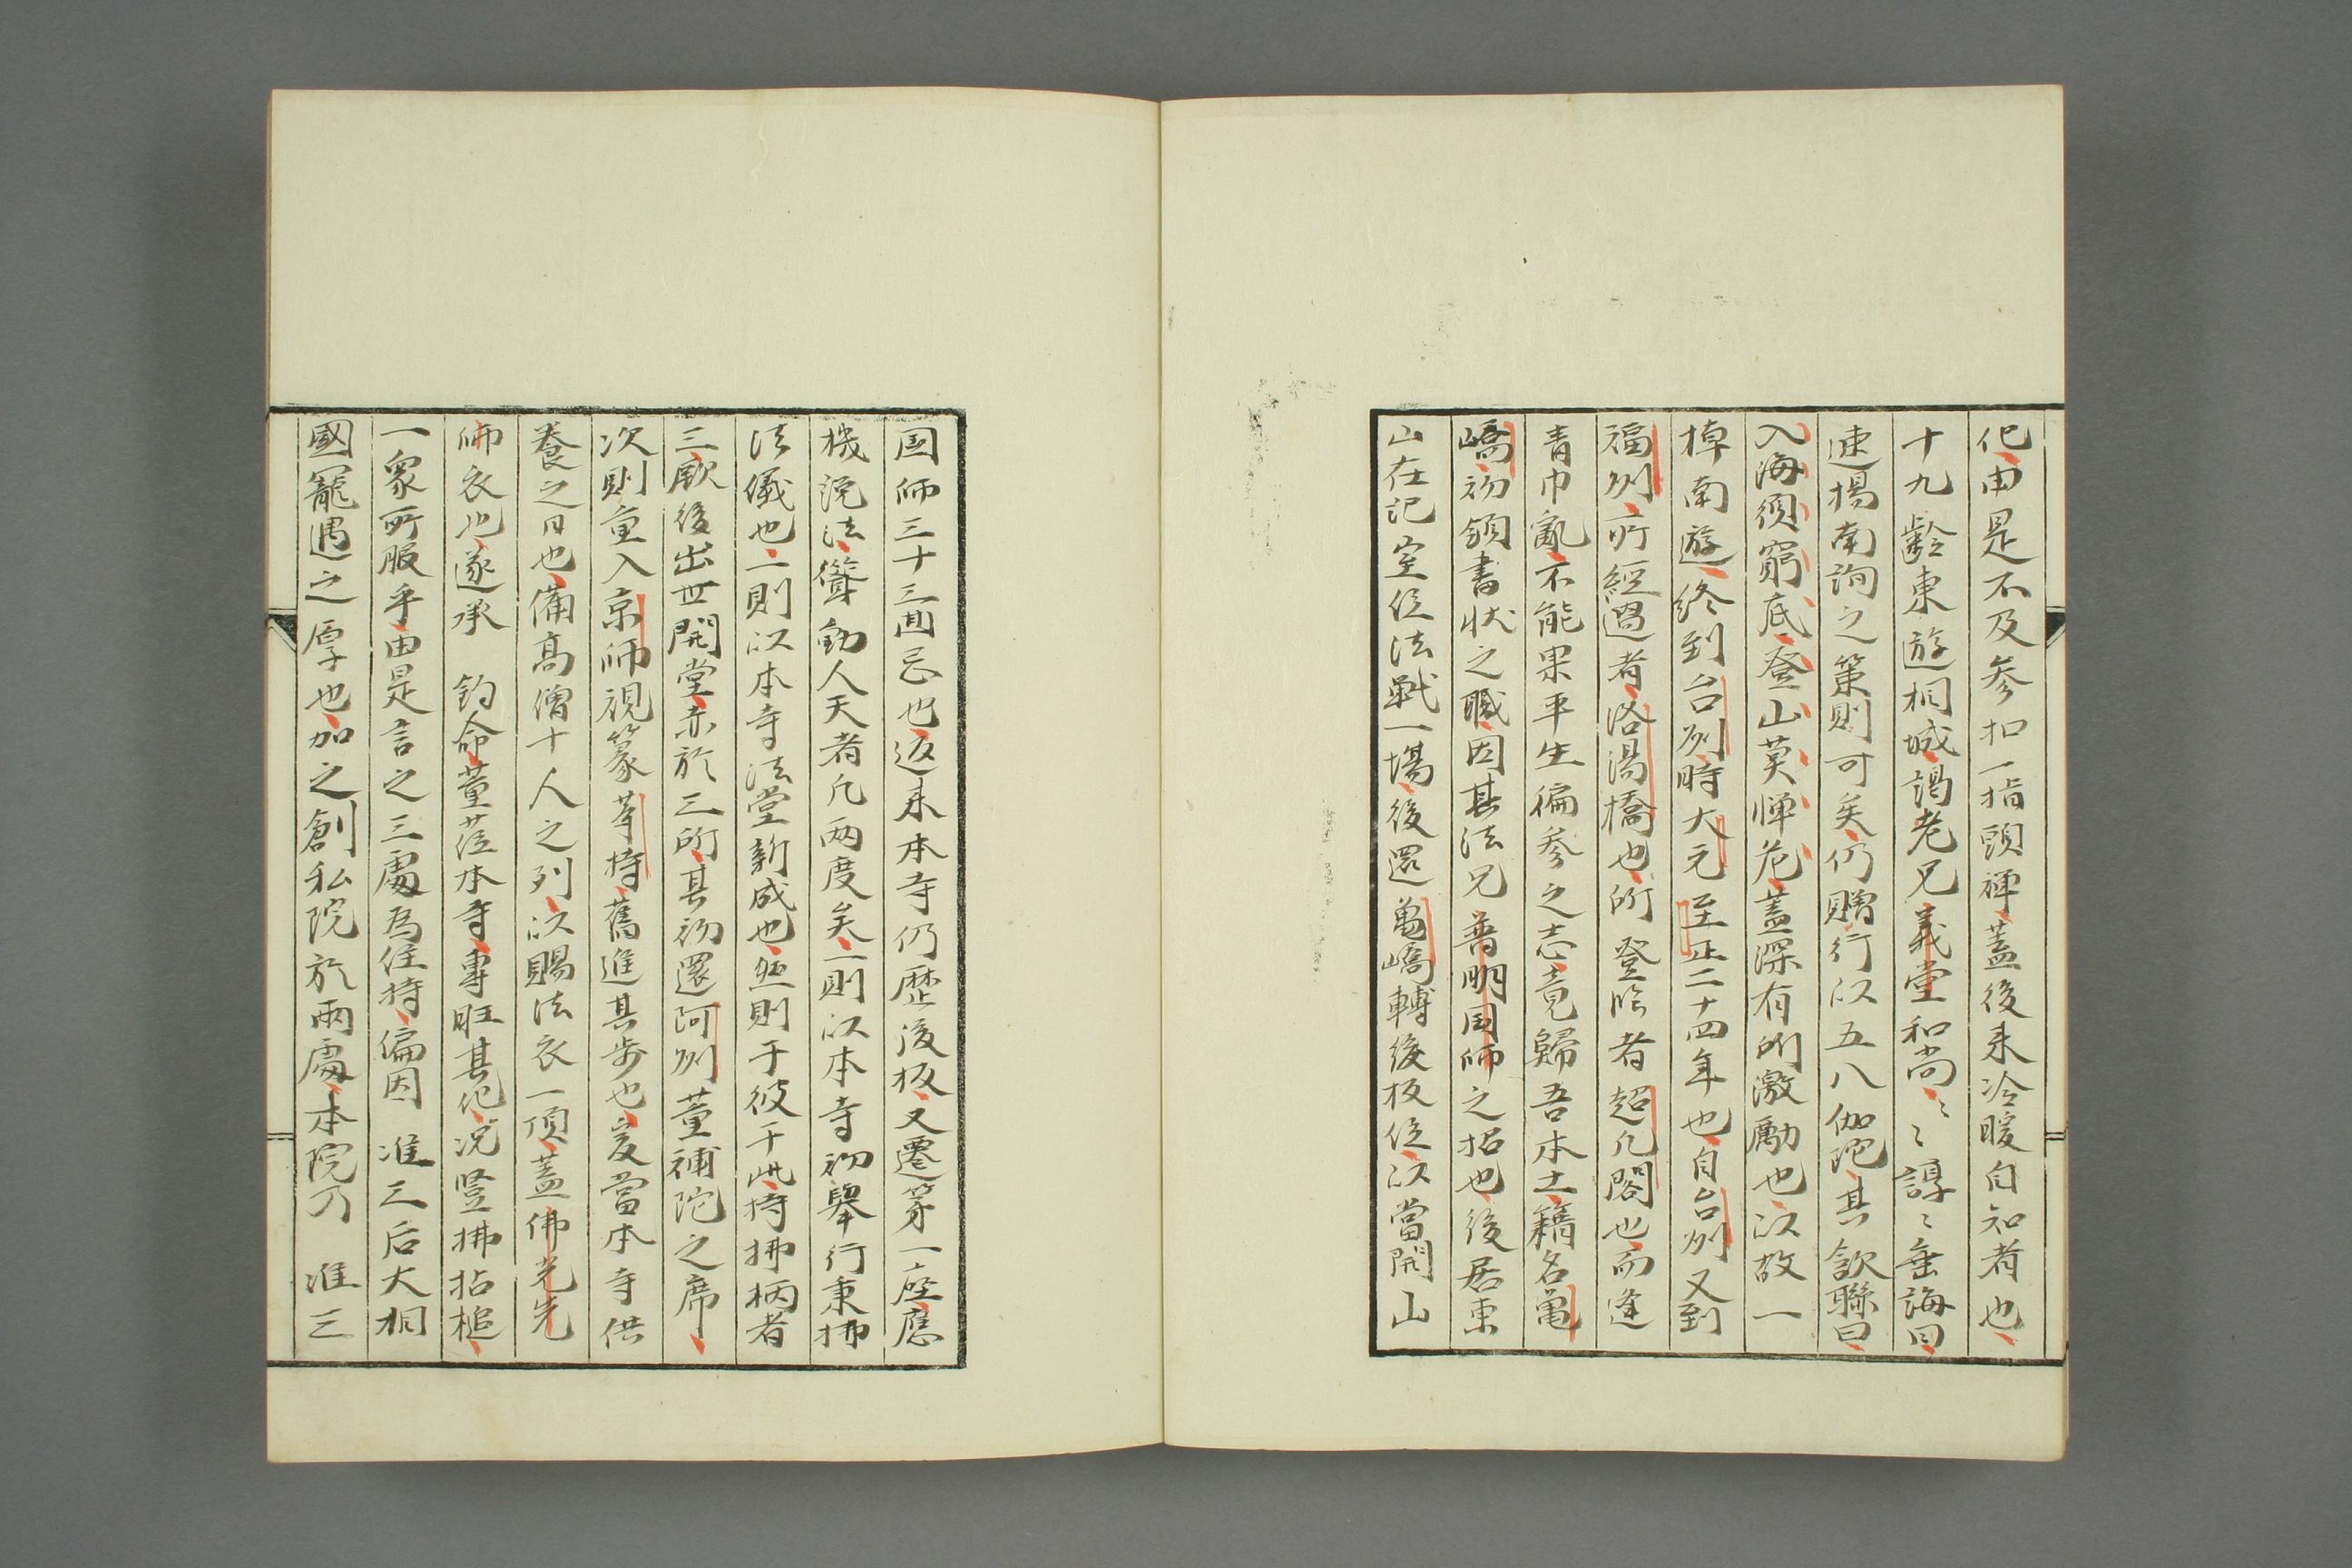 化由是不及参扣一指頭禅蓋後来冷暖自知者也
十九齢東遊桐城謁老兄義堂和尚〻〻諄〻垂誨曰
速揚南詢之策則可矣仍贈行以五八伽陀其歙聯曰
入海須窮底登山莫憚危蓋深有所激励也以故一
棹南遊終到台列時大元至正二十四年也自台列又到
福列所経過者洛湯橋也所登臨者超凢閣也而逢
青巾亂不能果平生徧参之志竟歸吾本土籍名亀
嶠初領書状之職因其法兄普明国師之招也後居東
山在記室位法戦一場後還亀嶠轉後板位以當開山
国師三十三囬忌也返来本寺仍歴後板又遷第一座應
機説法聳動人天者凢両度矣一則以本寺初舉行秉拂
法儀也二則以本寺法堂新成也然則于彼于此持拂柄者
三厥後出世開堂亦於三所其初還阿列董補陀之席
次則重入京師視篆等持舊進其歩也爰當本寺供
養之日也備高僧十人之列以賜法衣一頂蓋佛光先
師衣也遂承　鈞命董莅本寺専旺其化況竪拂拈槌
一衆所服乎由是言之三處為住持偏因　准三后大相
國寵遇之厚也加之創私院於両處本院乃　准三